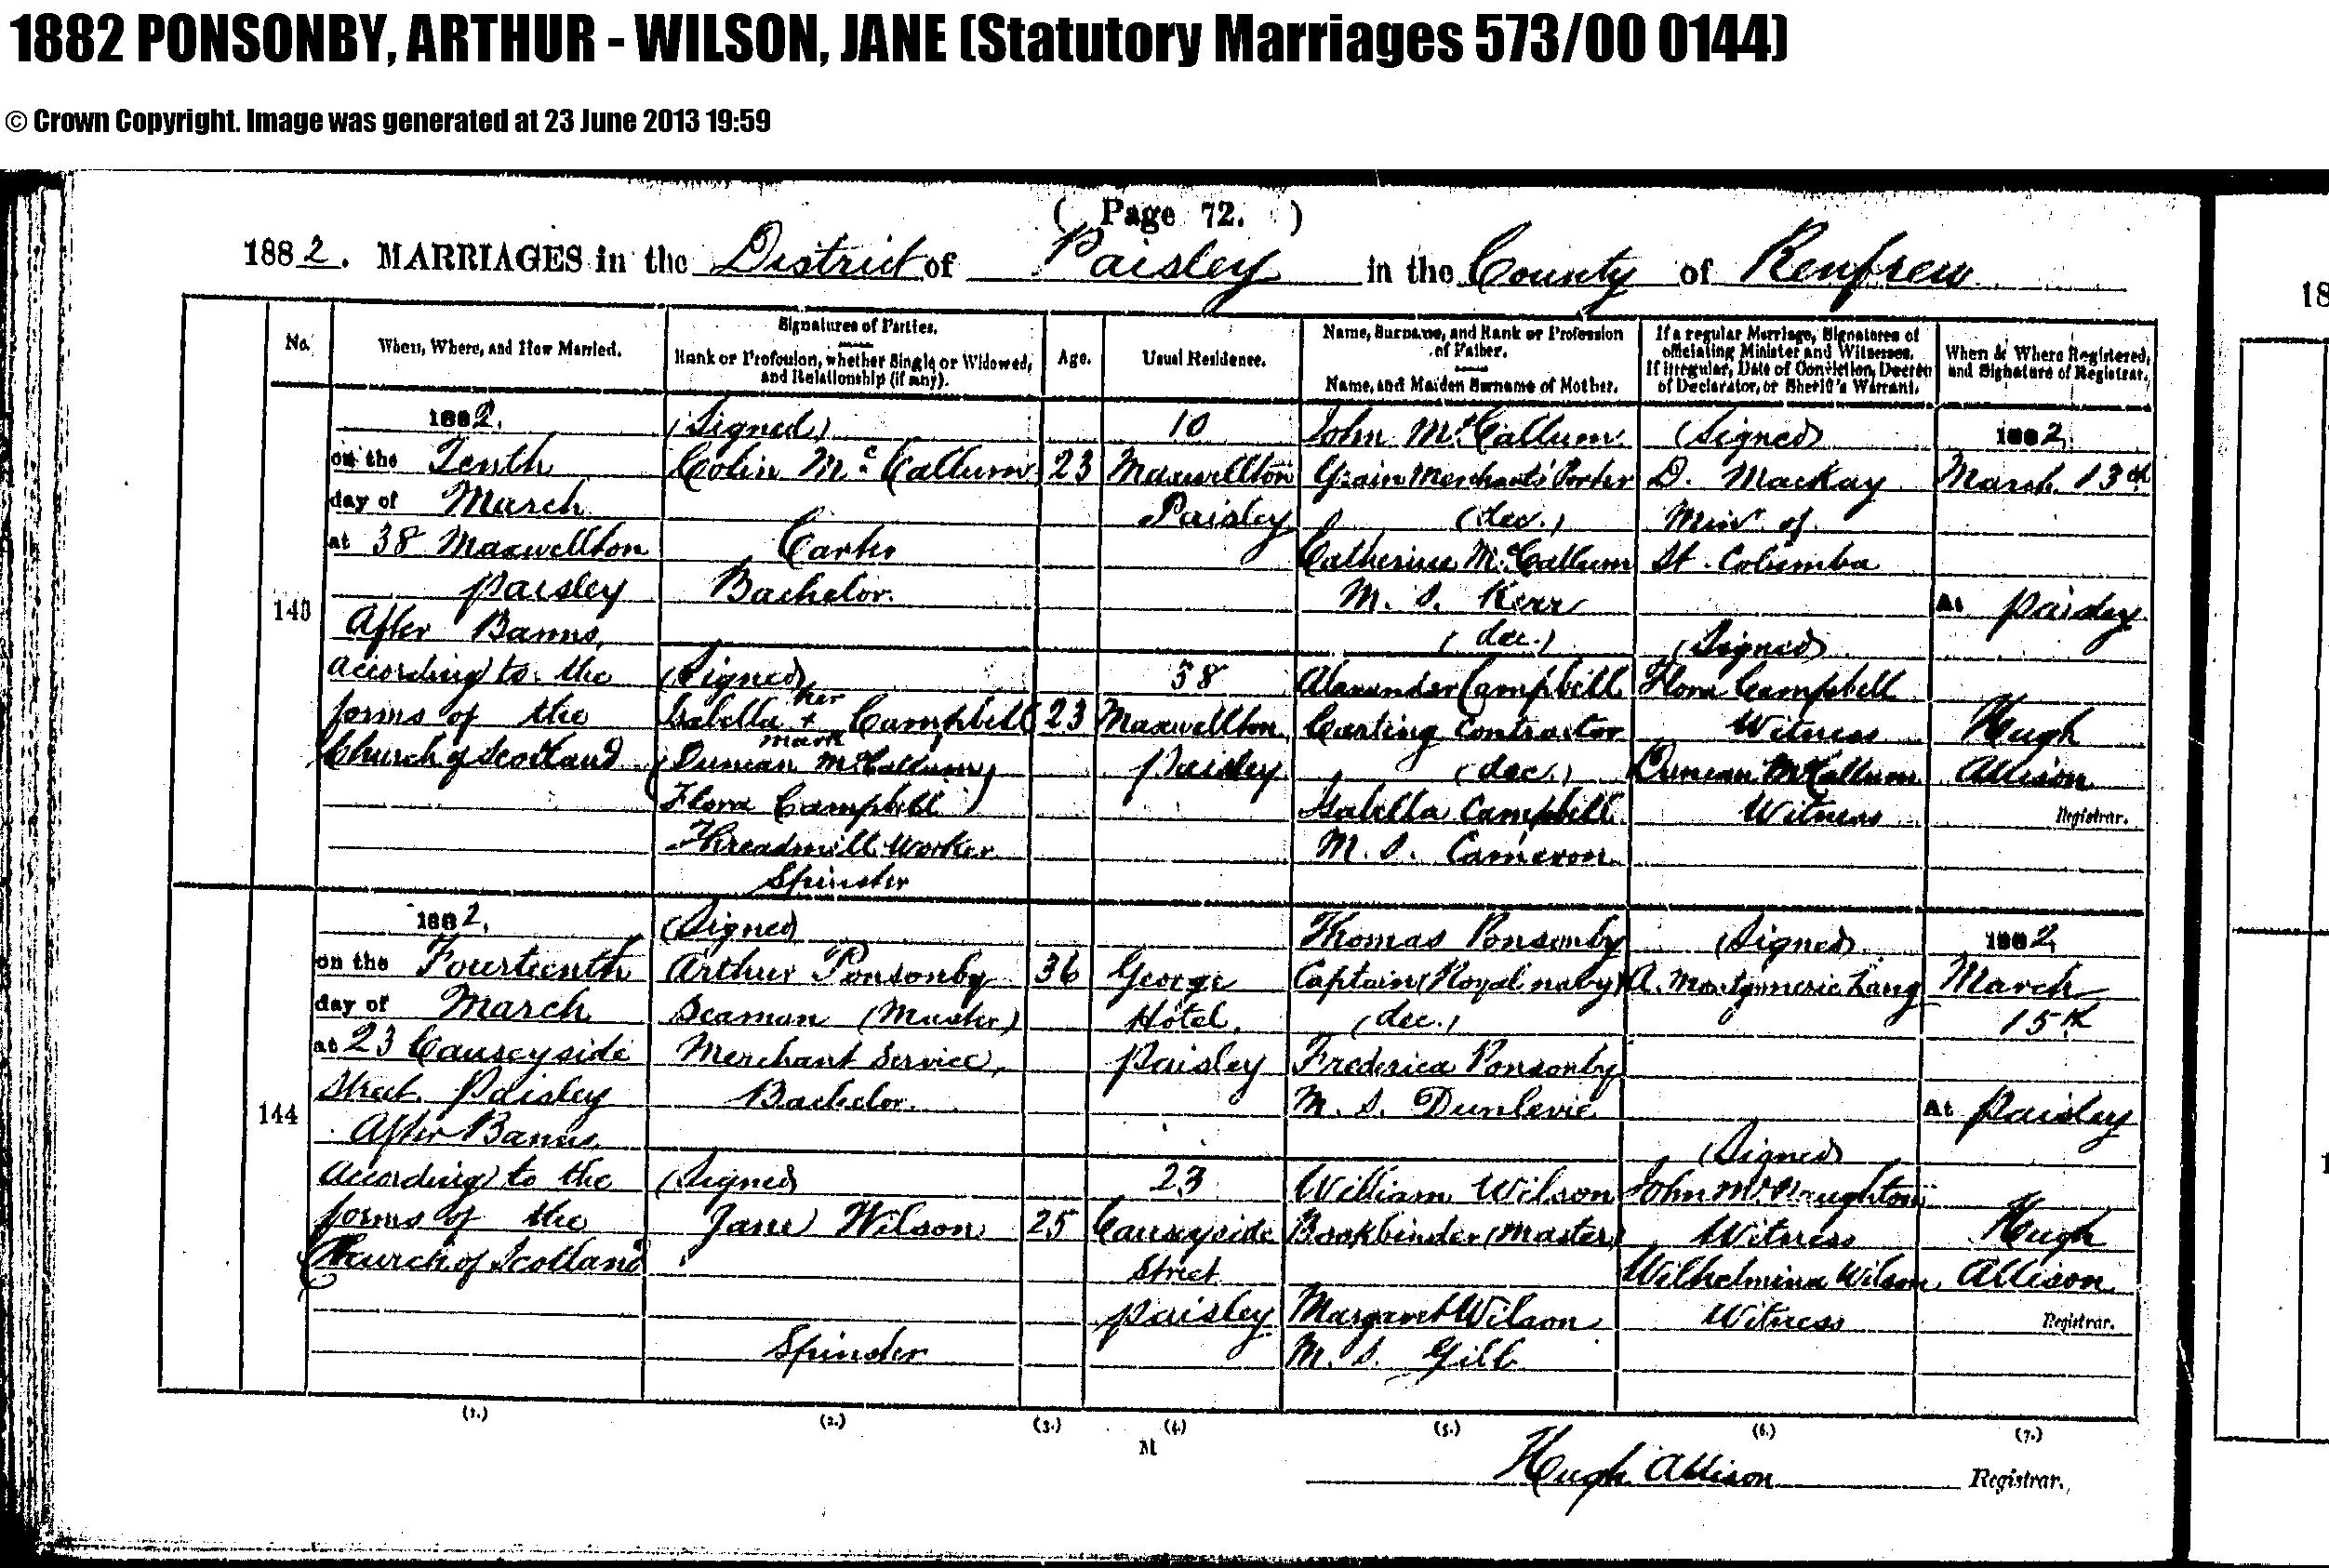 1882 PONSONBY, ARTHUR - WILSON, JANE (Statutory Marriages 573/00 0144)
© Crown Copyright. Image was generated at 23 June 2013 19:59
( Page 72. )
1882. MARRIAGES in the District of Paisley in the County of Renfrew
No.
When, Where, and How Married.
Signatures of Parties.
Rank or Profession, whether Single or Widowed,
and Relationship (if any).
Age.
Usual Residence.
Name, Surname, and Rank or Profession
of Father.
Name, and Maiden Surname of Mother.
If a regular Marriage, Signatures of
officiating Minister and Witnesses.
If irregular, Date of Conviction, Decree
of Declarator, or Sheriff's Warrant.
When & Where Registered,
and Signature of Registrar.
143
1882.
on the Tenth
day of March
at 38 Maxwellton
Paisley
After Banns,
according to the
forms of the
Church of Scotland
(Signed)
Colin Mc Callum
Carter
Bachelor.
(Signed)
her
Isabella + Campbell
mark
(Duncan McCallum)
Flora Campbell)
Threadmill Worker
Spinster
23
23
10
Maxwellton
Paisley
38
Maxwellton
Paisley
John McCallum
Grain Merchant's Porter
(dec.)
Catherine McCallum
M. S. Kerr
(dec.)
Alexander Campbell
Carting Contractor
(dec.)
Isabella Campbell
M. S. Cameron
(Signed)
D. Mackay
Minr. of
St. Columba
(Signed)
Flora Campbell
Witness
Duncan McCallum
Witness
1882,
March 13th
At Paisley
Hugh
Allison
Registrar.
144
1882.
on the Fourteenth
day of March
at 23 Causeyside
Street Paisley
After Banns,
according to the
forms of the
Church of Scotland
(Signed)
Arthur Ponsonby
Seaman (Master)
Merchant Service,
Bachelor.
(Signed)
Jane Wilson
Spinster
36
25
George
Hotel,
Paisley
23
Causeyside
Street
Paisley
Thomas Ponsonby
Captain (Royal navy)
(dec.)
Frederica Ponsonby
M. S. Dunlevie
William Wilson
Bookbinder (Master)
Margaret Wilson
M. S. Gill
(Signed)
A. Montgomerie Lang
(Signed)
John McNaughton
Witness
Wilhelmina Wilson
Witness
1882,
March
15th
At Paisley
Hugh
Allison
Registrar.
(1.) (2.) (3.) (4.) (5.) (6.) (7.)
M
Hugh Allison Registrar.
18
1